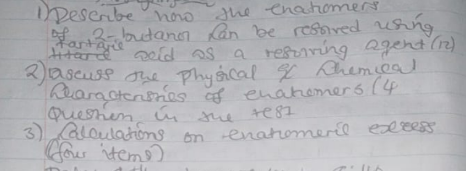 1) Describe how the enatiomers
of 2-butanol can be resolved using
tartaric acid as a resolving agent (12)
2) Discuss the Physical & Chemical
Characteristics of enatiomers (4
question in the test
3) Calculations on enatiomeric excess
(four items)